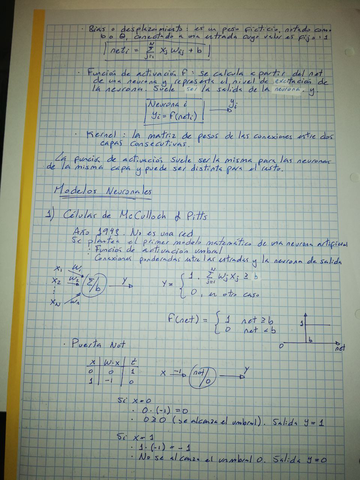 · Bias o desplazamiento: es un peso ficticio, notado como
b o θ, conectado a una entrada cuyo valor es fijo = 1
net i = Σ xj wij + b
N
j=1
· Función de activación F: Se calcula a partir del net
de una neurona y representa el nivel de excitación de
la neurona. Suele ser la salida de la neurona, y
Neurona i
yi = F(neti)
yi
· Kernel: la matriz de pesos de las conexiones entre dos
capas consecutivas.
La función de activación suele ser la misma para las neuronas
de la misma capa y puede ser distinta para el resto.
Modelos Neuronales
1) Células de McCulloch & Pitts
Año 1943. No es una red
Se plantea el primer modelo matemático de una neurona artificial
· Función de activación umbral
· Conexiones ponderadas entre las entradas y la neurona de salida
x1 w1
x2 w2
⋮
xN wn
Σ/b
y
y = { 1, Σ wj xj ≥ b
0, en otro caso
F(net) = { 1 net ≥ b
0 net < b
1
b
net
· Puerta Not
x w·x t
0 0 1
1 -1 0
x -1 not/0 y
Si x=0
· 0·(-1) = 0
· 0≥0 (se alcanza el umbral). Salida y=1
Si x=1
· 1·(-1) = -1
· No se alcanza el umbral 0. Salida y=0